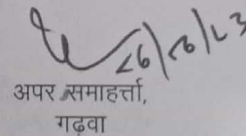 26/08/23
अपर समाहर्त्ता,
गढ़वा